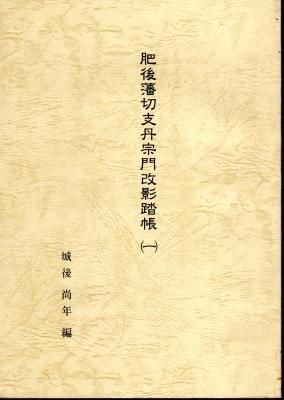 肥後藩切支丹宗門改影踏帳(一)
城後 尚年 編